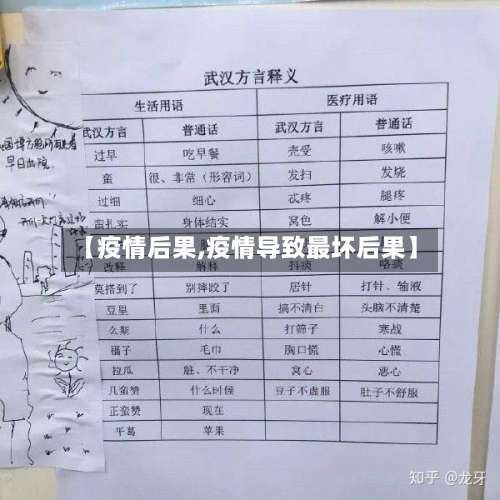 武汉方言释义
生活用语 医疗用语
武汉方言 普通话 武汉方言 普通话
过早 吃早餐 壳受 咳嗽
蛮 很、非常（形容词） 发扫 发烧
过细 细心 忒疼 腿疼
蛮扎实 身体结实 窝色 解小便
【疫情后果,疫情导致最坏后果】
莫搭到了 别摔跤了 居针 打针、输液
豆里 里面 搞不清白 头脑不清楚
么斯 什么 打筛子 寒战
毛巾 胸口慌 心慌
拉瓜 脏、不干净 窝心 恶心
几蛮赞 什么时候 豆子不虚服 肚子不舒服
正蛮赞 现在
平葛 苹果
早日出院
知乎 @龙牙